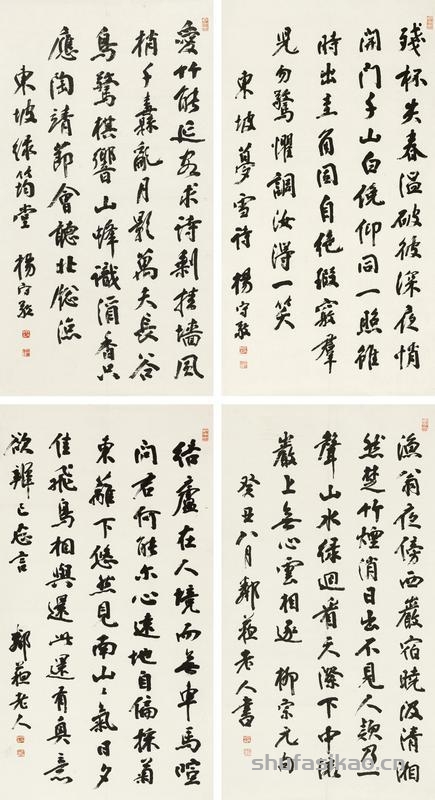 殘杯失春溫破被深夜悄
開門千山白俛仰同一照雖
時出圭角固自絕瑕竅群
兒勿驚懼調汝得一笑
東坡夢雪詩 楊守敬
愛竹能延客求詩剩挂墻風
梢千纛亂月影萬夫長谷
鳥驚棋響山蜂識酒香只
應陶靖節會聽北窓涼
東坡緑筠堂 楊守敬
漁翁夜傍西巖宿曉汲清湘
然楚竹煙消日出不見人欸乃一
聲山水緑迴看天際下中流
巖上無心雲相逐 柳宗元句
癸丑八月鄰蘇老人書
結廬在人境而無車馬喧
問君何能尔心遠地自偏採菊
東籬下悠然見南山〻氣日夕
佳飛鳥相與還此還有真意
欲辨已忘言 鄰蘇老人
shufasikao.cn